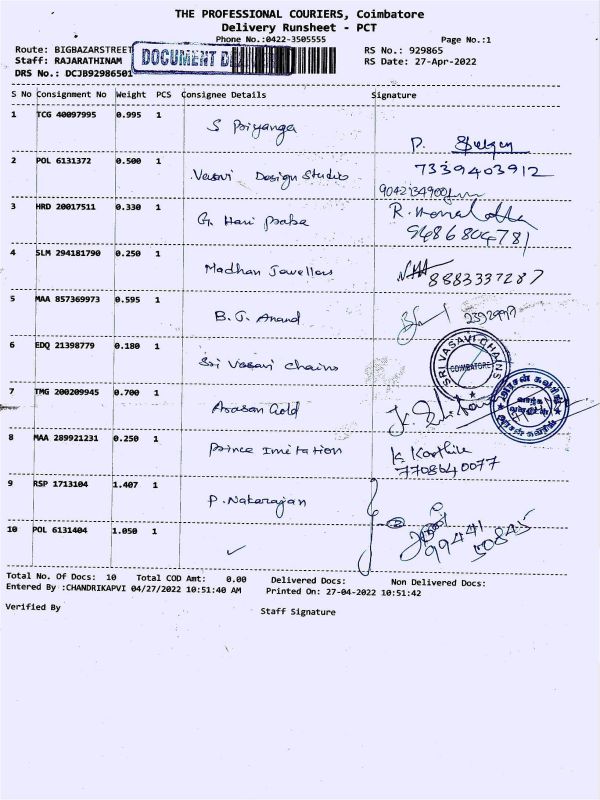 THE PROFESSIONAL COURIERS, Coimbatore
Delivery Runsheet - PCT
Phone No.:0422-3505555 Page No.:1
Route: BIGBAZARSTREET RS No.: 929865
Staff: RAJARATHINAM DOCUMENT RS Date: 27-Apr-2022
DRS No.: DCJB92986501
S No Consignment No Weight PCS Consignee Details Signature
1 TCG 40097995 0.995 1 S Priyanga
2 POL 6131372 0.500 1 Vasavi Design Studio 7339403912
9042134900
3 HRD 20017511 0.330 1 G. Hari R.
9486804781
4 SLM 294181790 0.250 1 Madhan Jewellers 8883337287
5 MAA 857369973 0.595 1 B.J. Anand
6 EDQ 21398779 0.180 1 Sri Vasavi chains SRI VASAVI CHAINS COIMBATORE
7 TMG 200209945 0.700 1 Arasan Gold
8 MAA 289921231 0.250 1 Prince Imitation K Karthik
7708640077
9 RSP 1713104 1.407 1 P. Natarajan
10 POL 6131404 1.050 1 99441
50845
Total No. Of Docs: 10 Total COD Amt: 0.00 Delivered Docs: Non Delivered Docs:
Entered By :CHANDRIKAPVI 04/27/2022 10:51:40 AM Printed On: 27-04-2022 10:51:42
Verified By Staff Signature